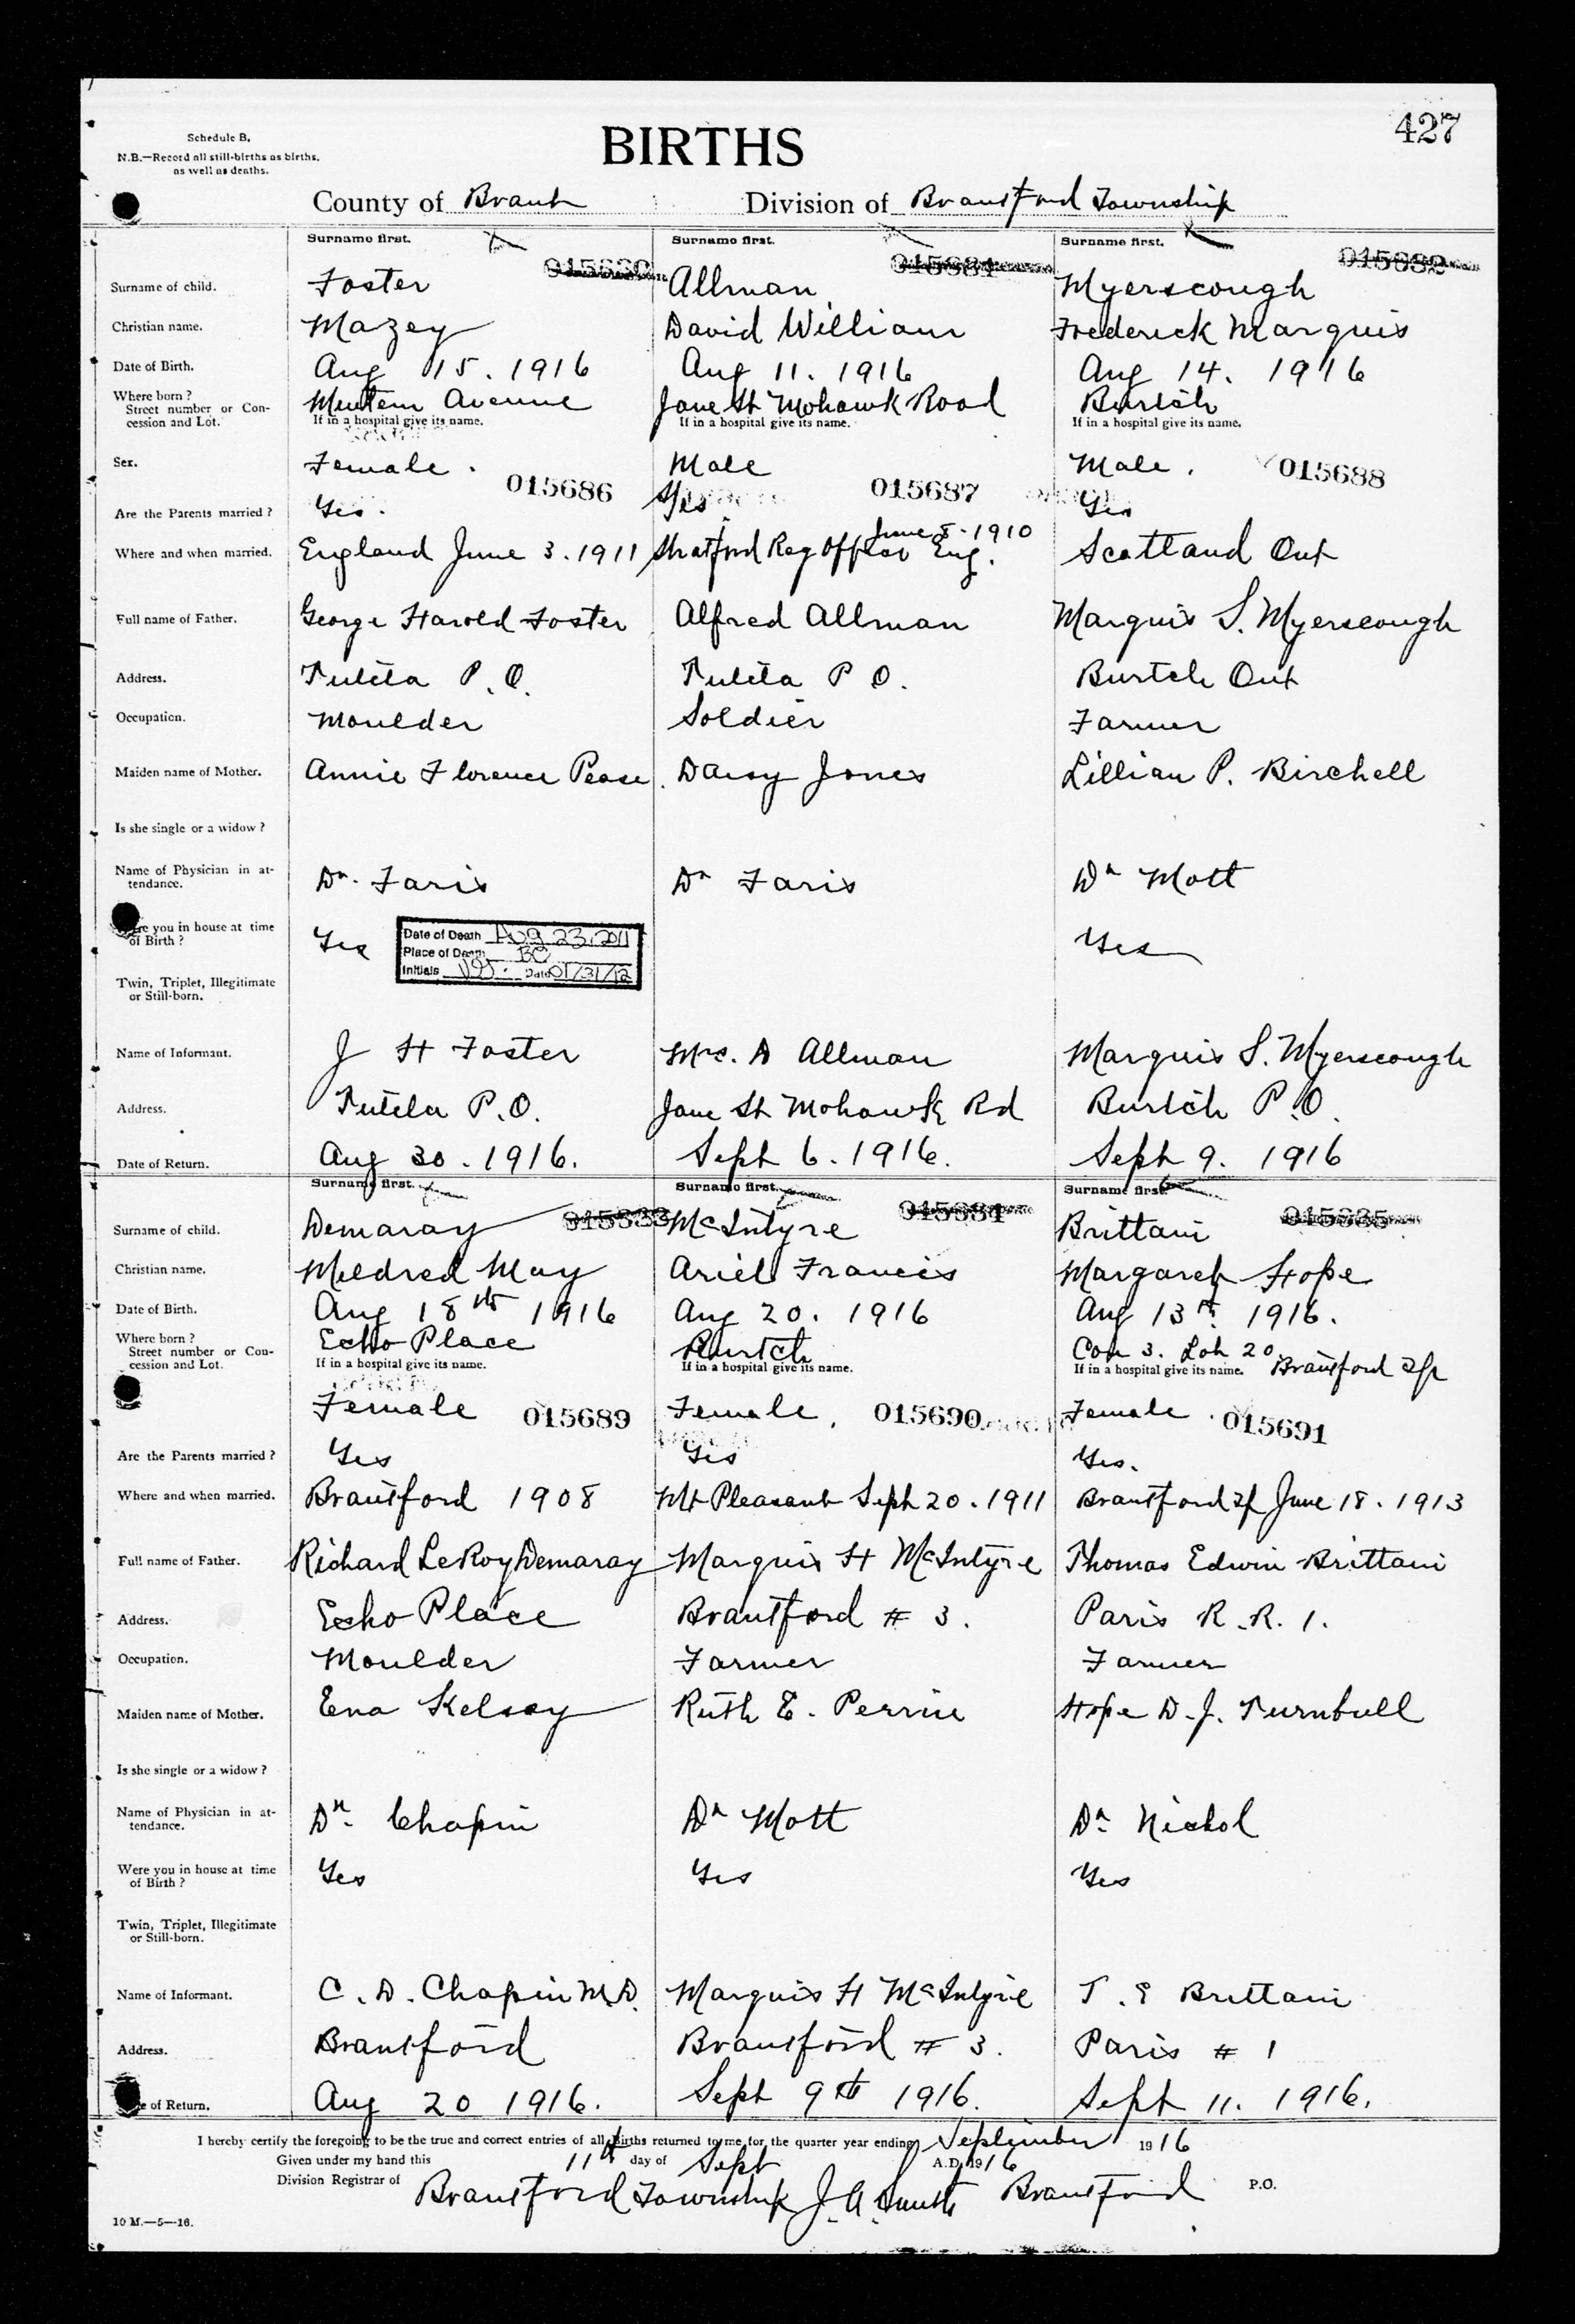 427
Schedule B.
N.B.—Record all still-births as births, as well as deaths.
BIRTHS
County of Brant Division of Brantford Township
Surname first. Surname first. Surname first.
Surname of child. Foster Allman Myerscough
Christian name. Mazey David William Frederick Marquis
Date of Birth. Aug 15. 1916 Aug 11. 1916 Aug 14. 1916
Where born? Street number or Concession and Lot. Avenue Jane St Mohawk Road Burtch
If in a hospital give its name. If in a hospital give its name. If in a hospital give its name.
Sex. Female. Male Male.
015686 015687 015688
Are the Parents married? Yes. Yes Yes
Where and when married. England June 3. 1911 Stratford Reg Office Eng. June 8. 1910 Scotland Ont
Full name of Father. George Harold Foster Alfred Allman Marquis S. Myerscough
Address. Tutela P.O. Tutela P O. Burtch Ont
Occupation. Moulder Soldier Farmer
Maiden name of Mother. Annie Florence Pease. Daisy Jones Lillian P. Birchell
Is she single or a widow?
Name of Physician in attendance. Dr. Faris Dr Faris Dr Mott
Were you in house at time of Birth? Yes Yes
Date of Death Aug 23, 2011
Place of Death BC
Initials Date 01/31/12
Twin, Triplet, Illegitimate or Still-born.
Name of Informant. J H Foster Mrs. A Allman Marquis S. Myerscough
Address. Tutela P.O. Jane St Mohawk Rd Burtch P.O.
Date of Return. Aug 30. 1916. Sept 6. 1916. Sept 9. 1916
Surname first. Surname first. Surname first.
Surname of child. Demaray McIntyre Brittain
Christian name. Mildred May Ariel Francis Margaret Hope
Date of Birth. Aug 18th 1916 Aug 20. 1916 Aug 13th. 1916.
Where born? Street number or Concession and Lot. Echo Place Burtch Con 3. Lot 20. Brantford Tp
If in a hospital give its name. If in a hospital give its name. If in a hospital give its name.
Female Female. Female
015689 015690 015691
Are the Parents married? Yes Yes Yes.
Where and when married. Brantford 1908 Mt Pleasant Sept 20. 1911 Brantford Tp June 18. 1913
Full name of Father. Richard LeRoy Demaray Marquis H McIntyre Thomas Edwin Brittain
Address. Echo Place Brantford # 3. Paris R.R. 1.
Occupation. Moulder Farmer Farmer
Maiden name of Mother. Ena Kelsey Ruth E. Perrin Hope D.J. Turnbull
Is she single or a widow?
Name of Physician in attendance. Dr. Chapin Dr Mott Dr. Nichol
Were you in house at time of Birth? Yes Yes Yes
Twin, Triplet, Illegitimate or Still-born.
Name of Informant. C. D. Chapin M.D. Marquis H McIntyre T. E Brittain
Address. Brantford Brantford # 3. Paris # 1
of Return. Aug 20 1916. Sept 9th 1916. Sept 11. 1916.
I hereby certify the foregoing to be the true and correct entries of all Births returned to me for the quarter year ending September 1916
Given under my hand this 11th day of Sept A.D. 1916
Division Registrar of Brantford Township J. A. Smith Brantford P.O.
10 M.—5—16.